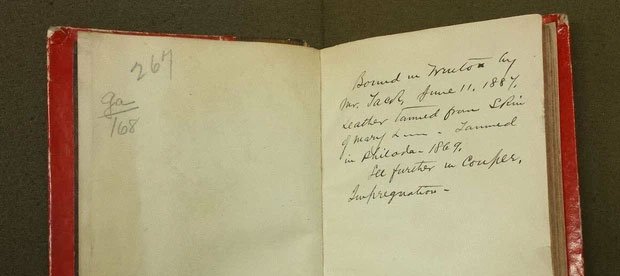 267
Ga
168
Bound in Trenton by
Mr. Jacob, June 11, 1887.
Leather tanned from Skin
of Mary L——. Tanned
in Philada. 1869.
See further in Couper,
Impregnation—